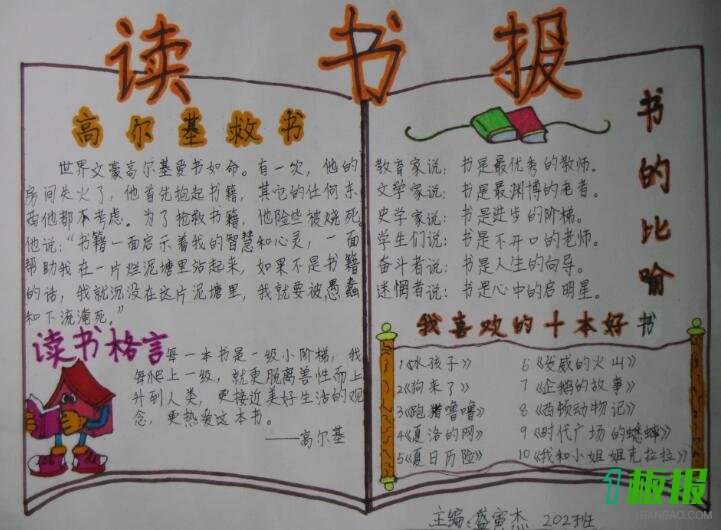 读书报
高尔基救书
世界文豪高尔基爱书如命。有一次，他的
房间失火了，他首先抱起书籍，其它的任何东
西他都不考虑。为了抢救书籍，他险些被烧死。
他说：“书籍一面启示着我的智慧和心灵，一面
帮助我在一片烂泥塘里站起来，如果不是书籍
的话，我就沉没在这片泥塘里，我就要被愚蠢
和下流淹死。”
读书格言
每一本书是一级小阶梯，我
每爬上一级，就更脱离兽性而上
升到人类，更接近美好生活的观
念，更热爱这本书。
——高尔基
书的比喻
教育家说：书是最优秀的教师。
文学家说：书是最渊博的老者。
史学家说：书是进步的阶梯。
学生们说：书是不开口的老师。
奋斗者说：书是人生的向导。
迷惘者说：书是心中的启明星。
我喜欢的十本好书
1《水孩子》
2《狗来了》
3《跑猪噜噜》
4《夏洛的网》
5《夏日历险》
6《发威的火山》
7《企鹅的故事》
8《西顿动物记》
9《时代广场的蟋蟀》
10《我和小姐姐克拉拉》
主编：盛寅杰 202班
1板报
WWW.1BANBAO.COM